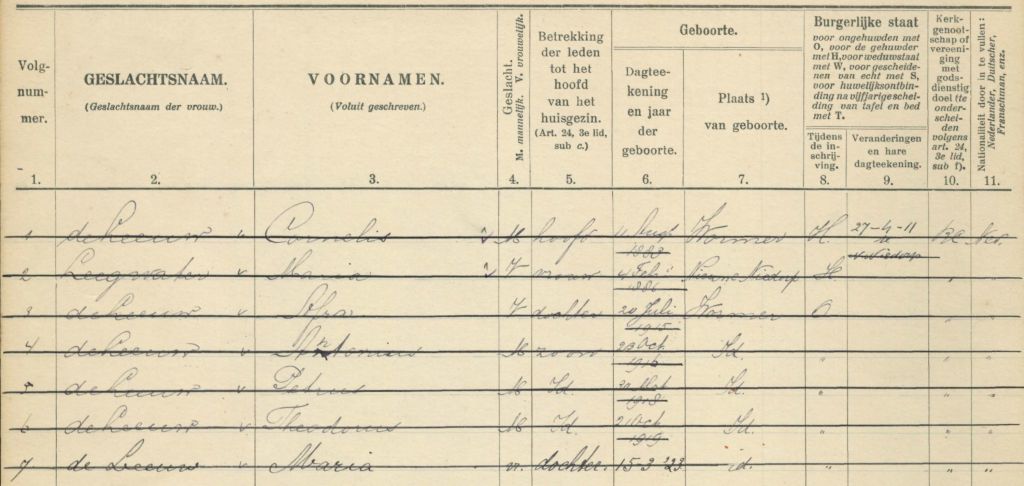 Volg-
num-
mer.
GESLACHTSNAAM.
(Geslachtsnaam der vrouw.)
VOORNAMEN.
(Voluit geschreven.)
Geslacht.
M. mannelijk. V. vrouwelijk.
Betrekking
der leden
tot het
hoofd
van het
huisgezin.
(Art. 24, 3e lid,
sub c.)
Geboorte.
Dagtee-
kening
en jaar
der
geboorte.
Plaats ¹)
van geboorte.
Burgerlijke staat
voor ongehuwden met
O, voor de gehuwden
met H, voor weduwstaat
met W, voor gescheide-
nen van echt met S,
voor huwelijksontbin-
ding na vijfjarige schei-
ding van tafel en bed
met T.
Tijdens
de in-
schrij-
ving.
Veranderingen
en hare
dagteekening.
Kerk-
genoot-
schap of
vereeni-
ging
met
gods-
dienstig
doel te
onder-
scheiden
volgens
art. 24,
3e lid,
sub f).
Nationaliteit door in te vullen:
Nederlander, Duitscher,
Franschman, enz.
1. 2. 3. 4. 5. 6. 7. 8. 9. 10. 11.
1 de Leeuw v Cornelis M hoofd 11 Wormer H. 27-4-11 Ned.
N. Niedorp
2 Leegwater v Maria V vrouw 4 Feb. Nieuwe Niedorp H. "
1886
3 de Leeuw v Afra V dochter 20 Juli Wormer O "
1915
4 de Leeuw v Antonius M zoon 23 Oct. Id. " "
1916
5 de Leeuw v Petrus M Id. Id. " "
1918
6 de Leeuw v Theodorus M Id. 2 Oct Id. " "
1919
7 de Leeuw v Maria v. dochter. 15-3 '23 id. " " "